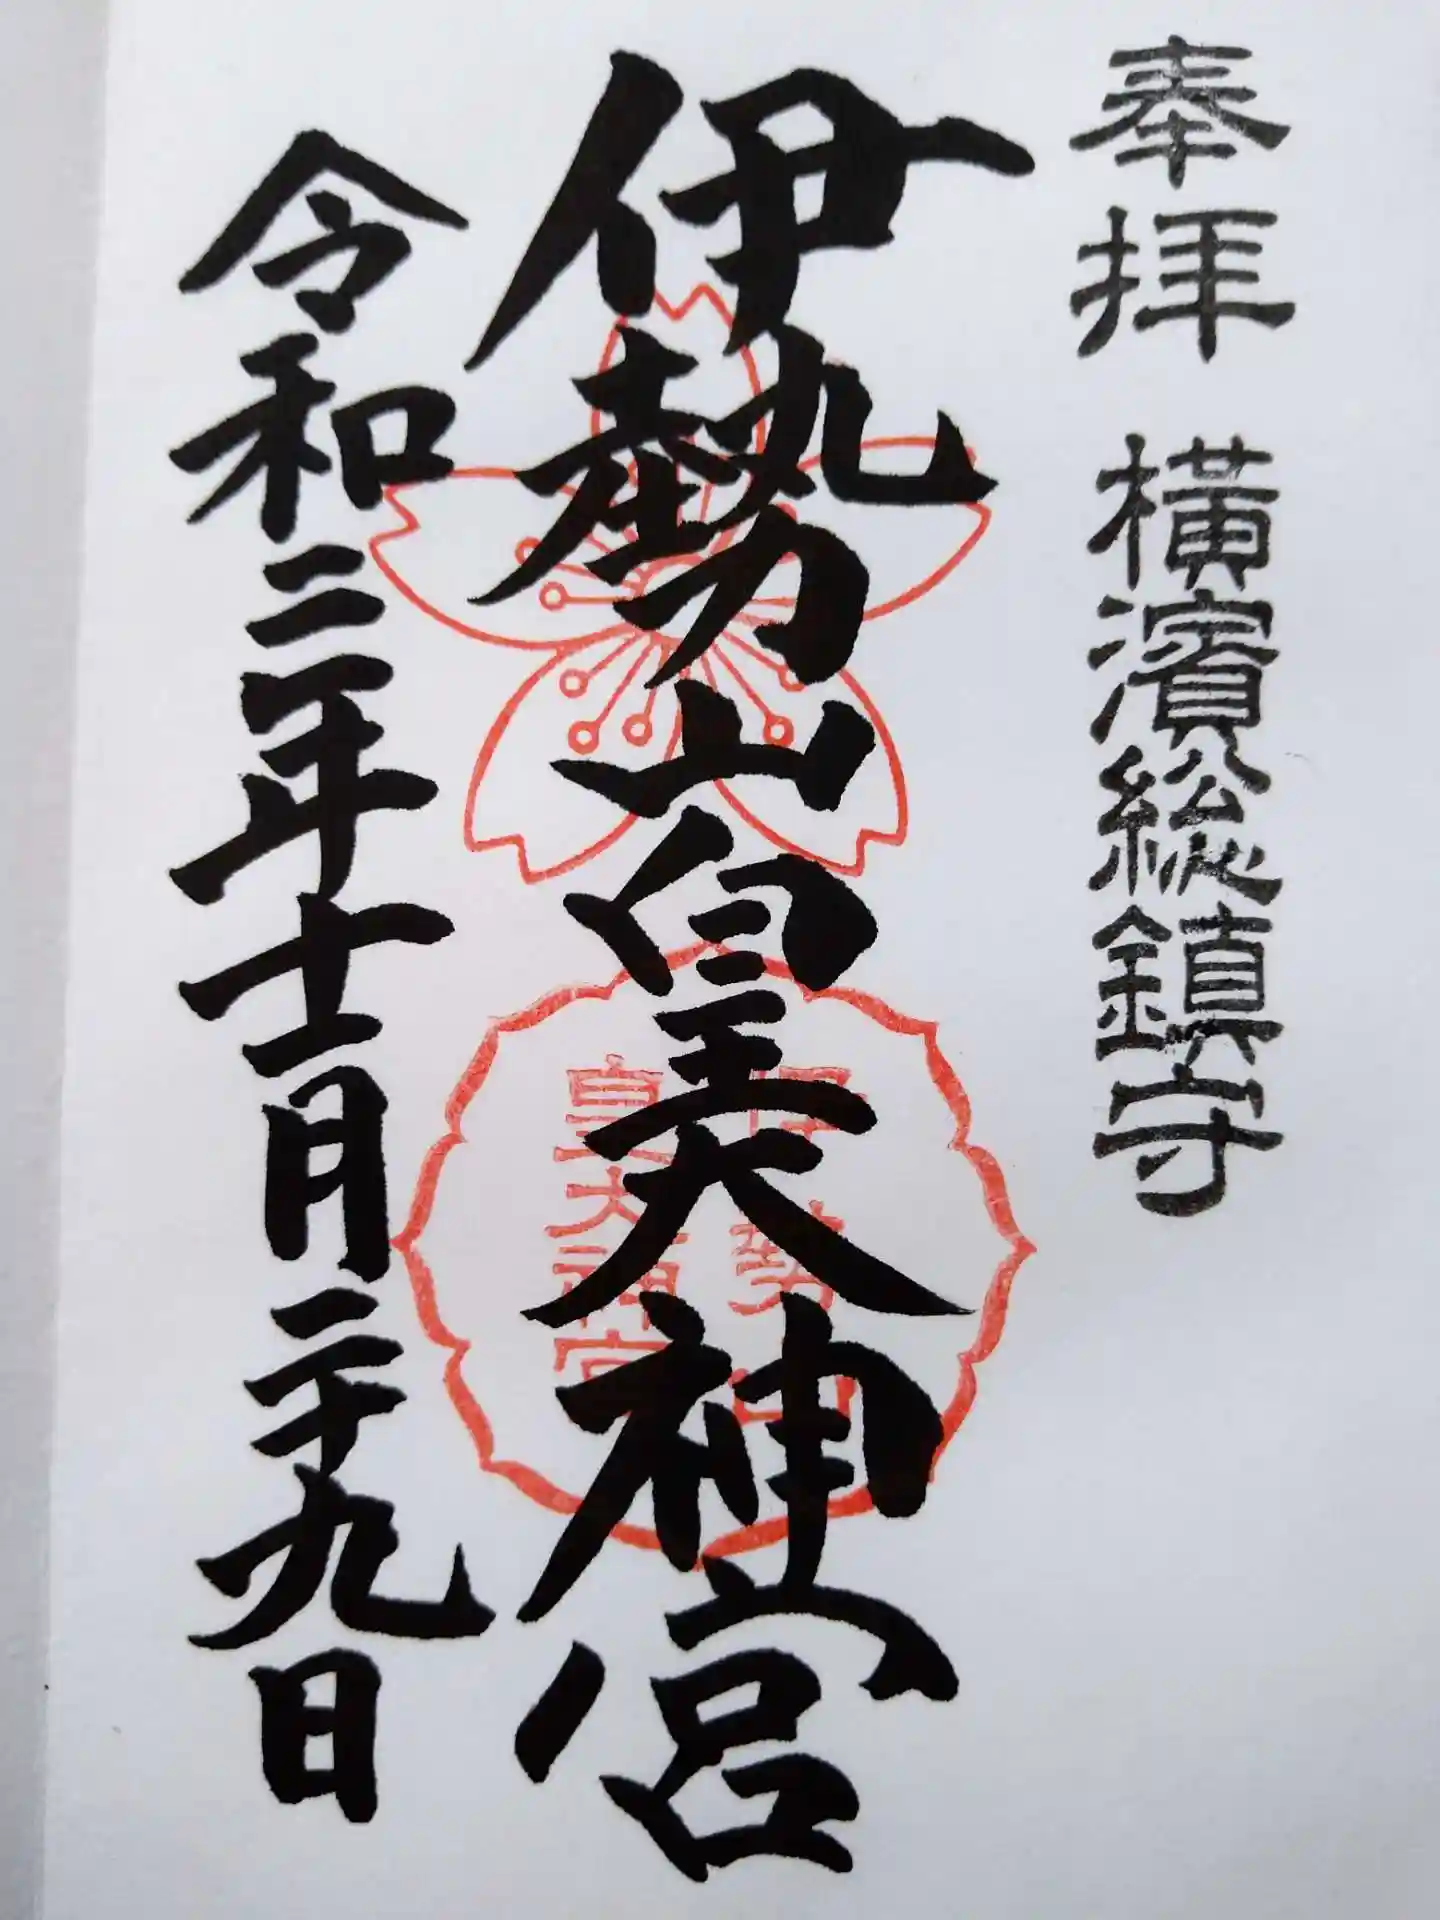 奉拝　横濱総鎮守
伊勢山皇大神宮
令和二年十一月二十九日
伊勢山
皇大神宮